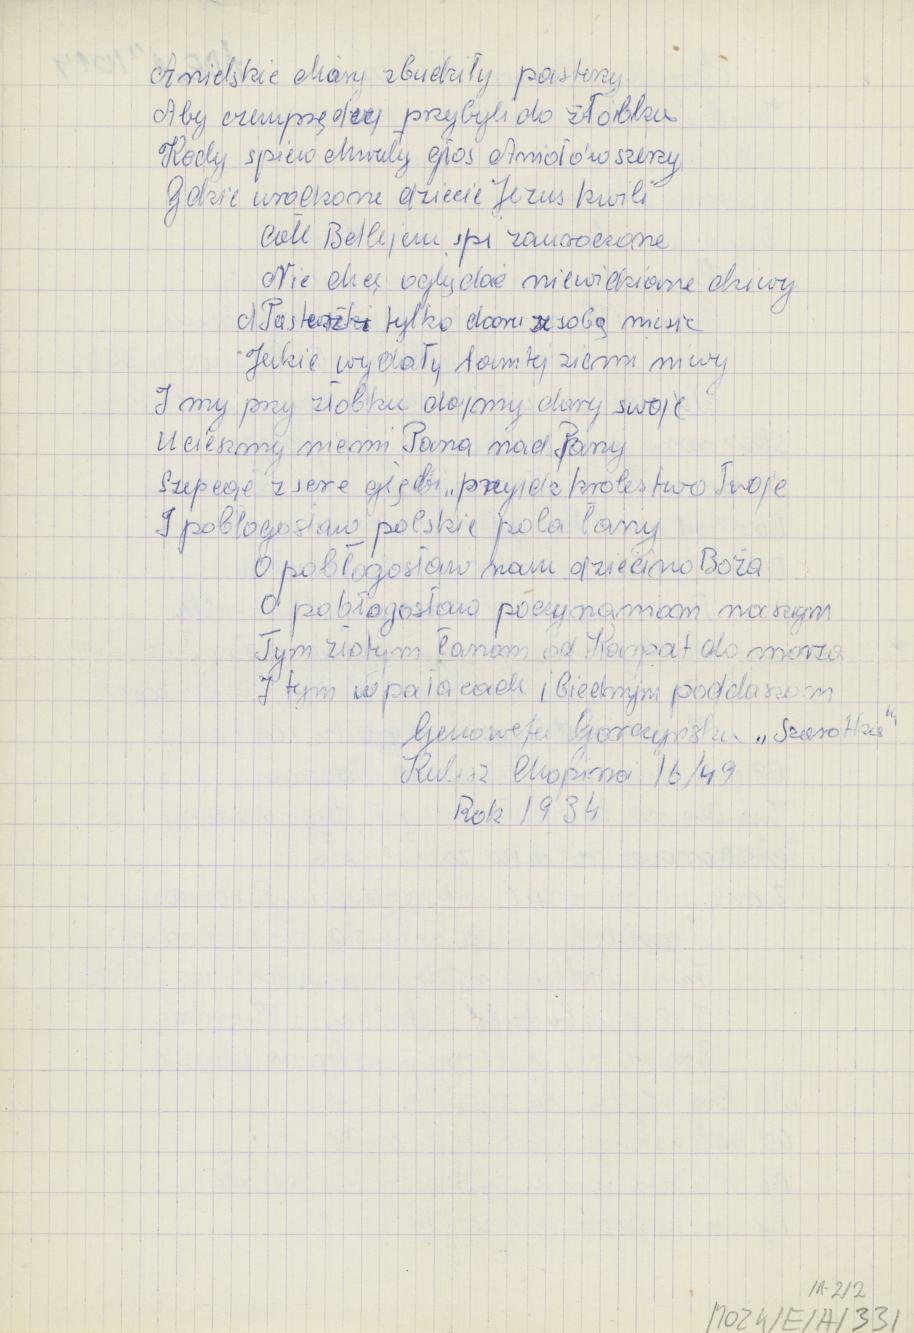 Anielskie chóry zbudziły pasterzy
Aby czemprędzej przybyli do żłobka
Kędy śpiew chwały głos Aniołów szerzy
Gdzie urodzone dziecie Jezus kwili
Całe Betlejem śpi zamroczone
Nie chcą oglądać niewidziane dziwy
A Pastuszki tylko dary z sobą niesie
Jakie wydały tamtej ziemi niwy
I my przy żłobku dajmy dary swoje
Ucieszmy niemi Pana nad Pany
Szepcąc z serc głębi „przyjdz krolestwo Twoje
I pobłogosław polskie pola łany
O pobłogosław nam dziecino Boża
O pobłogosław poczynaniom naszym
Tym złotym łanom od Karpat do morza
I tym w pałacach i biednym poddaszom
Genowefa Gorczyńska „Szarotka"
Chopina 16/49
Rok 1934
MOZK/E/A/331